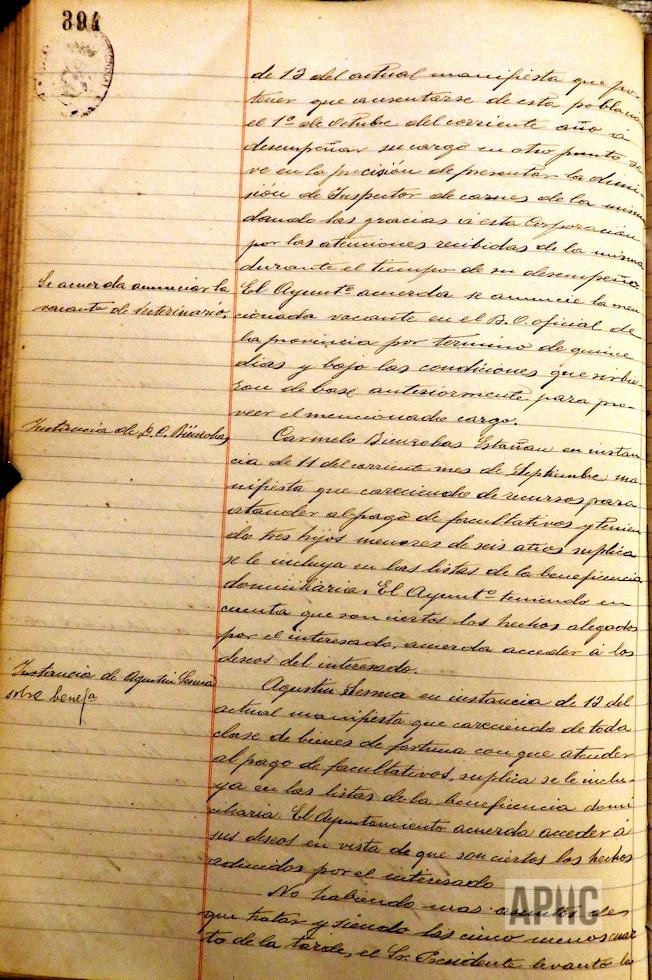 394
de 12 del actual manifiesta que por
tener que ausentarse de esta poblacion
el 1º de Octubre del corriente año á
desempeñar su cargo en otro punto se
ve en la precisión de presentar la dimi
sión de Inspector de carnes de la misma
dando las gracias á esta Corporación
por las atenciones recibidas de la misma
durante el tiempo de su desempeño
Se acuerda anunciar la
vacante de Veterinario.
El Ayuntº acuerda se anuncie la men
cionada vacante en el B. O. oficial de
la provincia por termino de quince
dias y bajo las condiciones que sirvie
ron de base anteriormente para pro-
veer el mencionado cargo.
Instancia de D. C. Bienzobas
Carmelo Bienzobas Estañan en instan
cia de 11 del corriente mes de Septiembre ma
nifiesta que careciendo de recursos para
atender al pago de facultativos y tenien
do tres hijos menores de seis años suplica
se le incluya en las listas de la beneficencia
domiciliaria. El Ayuntº teniendo en
cuenta que son ciertos los hechos alegados
por el interesado, acuerda acceder á los
deseos del interesado.
Instancia de Agustin Sesma
sobre benefª
Agustin Sesma en instancia de 12 del
actual manifiesta que careciendo de toda
clase de bienes de fortuna con que atender
al pago de facultativos, suplica se le inclu-
ya en las listas de la beneficencia domi
ciliaria. El Ayuntamiento acuerda acceder á
sus deseos en vista de que son ciertos los hechos
aducidos por el interesado
No habiendo mas asuntos de
que tratar y siendo las cinco menos cuar
to de la tarde, el Sr. Presidente levantó la
APHC